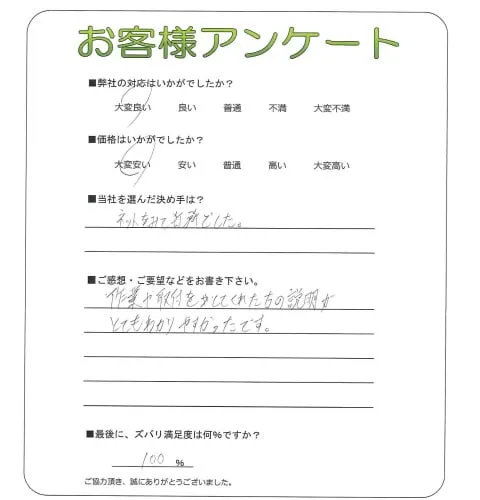 お客様アンケート
■弊社の対応はいかがでしたか?
大変良い 良い 普通 不満 大変不満
■価格はいかがでしたか?
大変安い 安い 普通 高い 大変高い
■当社を選んだ決め手は?
ネットをみて でした。
■ご感想・ご要望などをお書き下さい。
作業や取付をしてくれた方の説明が
とてもわかりやすかったです。
■最後に、ズバリ満足度は何%ですか?
100 %
ご協力頂き、誠にありがとうございました。